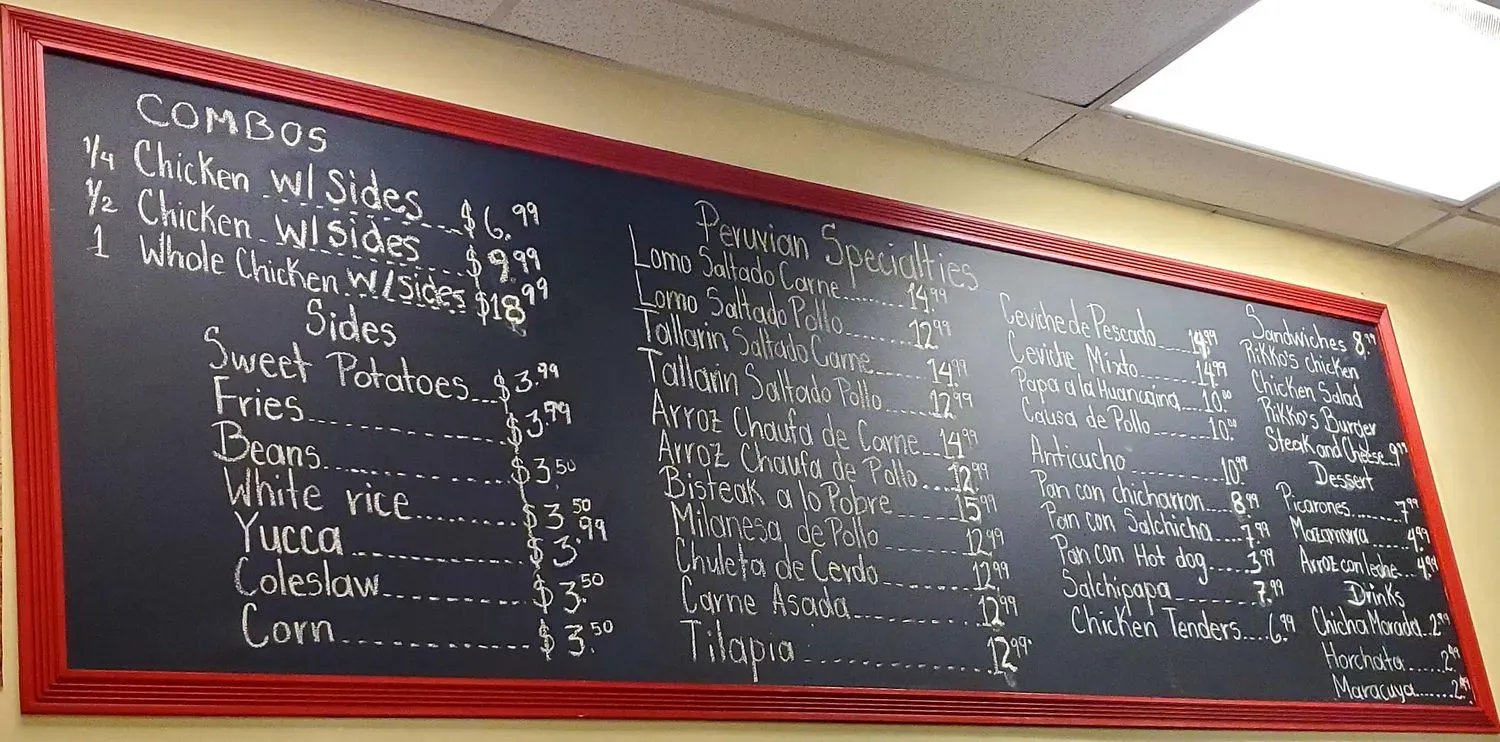 COMBOS
1/4 Chicken w/ Sides $6.99
1/2 Chicken w/sides $9.99
1 Whole Chicken w/sides $18.99
Sides
Sweet Potatoes $3.99
Fries $3.99
Beans $3.50
White rice $3.50
Yucca $3.99
Coleslaw $3.50
Corn $3.50
Peruvian Specialties
Lomo Saltado Carne 14.99
Lomo Saltado Pollo 12.99
Tallarin Saltado Carne 14.99
Tallarin Saltado Pollo 12.99
Arroz Chaufa de Carne 14.99
Arroz Chaufa de Pollo 12.99
Bisteak a lo Pobre 15.99
Milanesa de Pollo 12.99
Chuleta de Cerdo 12.99
Carne Asada 12.99
Tilapia 12.99
Ceviche de Pescado 14.99
Ceviche Mixto 14.99
Papa a la Huancaina 10.00
Causa de Pollo 10.00
Anticucho 10.99
Pan con chicharron 8.99
Pan con Salchicha 7.99
Pan con Hot dog 3.99
Salchipapa 7.99
Chicken Tenders 6.99
Sandwiches 8.99
Rikko's chicken
Chicken Salad
Rikko's Burger
Steak and Cheese 9.99
Dessert
Picarones 7.99
Mazamorra 4.99
Arroz con leche 4.99
Drinks
Chicha Morada 2.99
Horchata 2.99
Maracuya 2.99